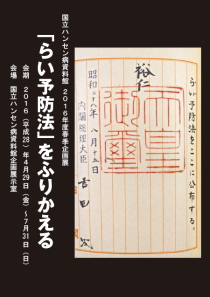 国立ハンセン病資料館 2016年度春季企画展
「らい予防法」をふりかえる
会期 2016(平成28)年4月29日(金)~7月31日(日)
会場 国立ハンセン病資料館企画展示室
らい予防法をここに公布する。
裕仁
天皇御璽
昭和二十八年八月十五日
内閣総理大臣 吉田茂